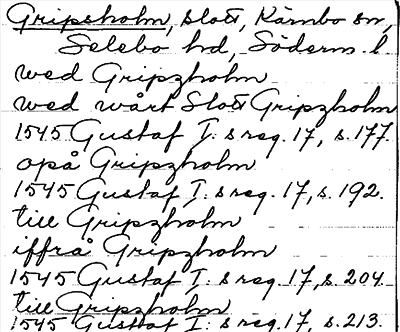 Gripsholm, slott, Kärnbo sn,
Selebo hd, Söderm. l.
wed Gripzholm
wed wårt Slott Gripzholm
1545 Gustaf I: s reg. 17, s. 177.
opå Gripzholm
1545 Gustaf I: s reg. 17, s. 192.
till Gripzholm
iffrå Gripzholm
1545 Gustaf I: s reg. 17, s. 204.
till Gripzholm
1545 Gustaf I: s reg. 17, s. 213.